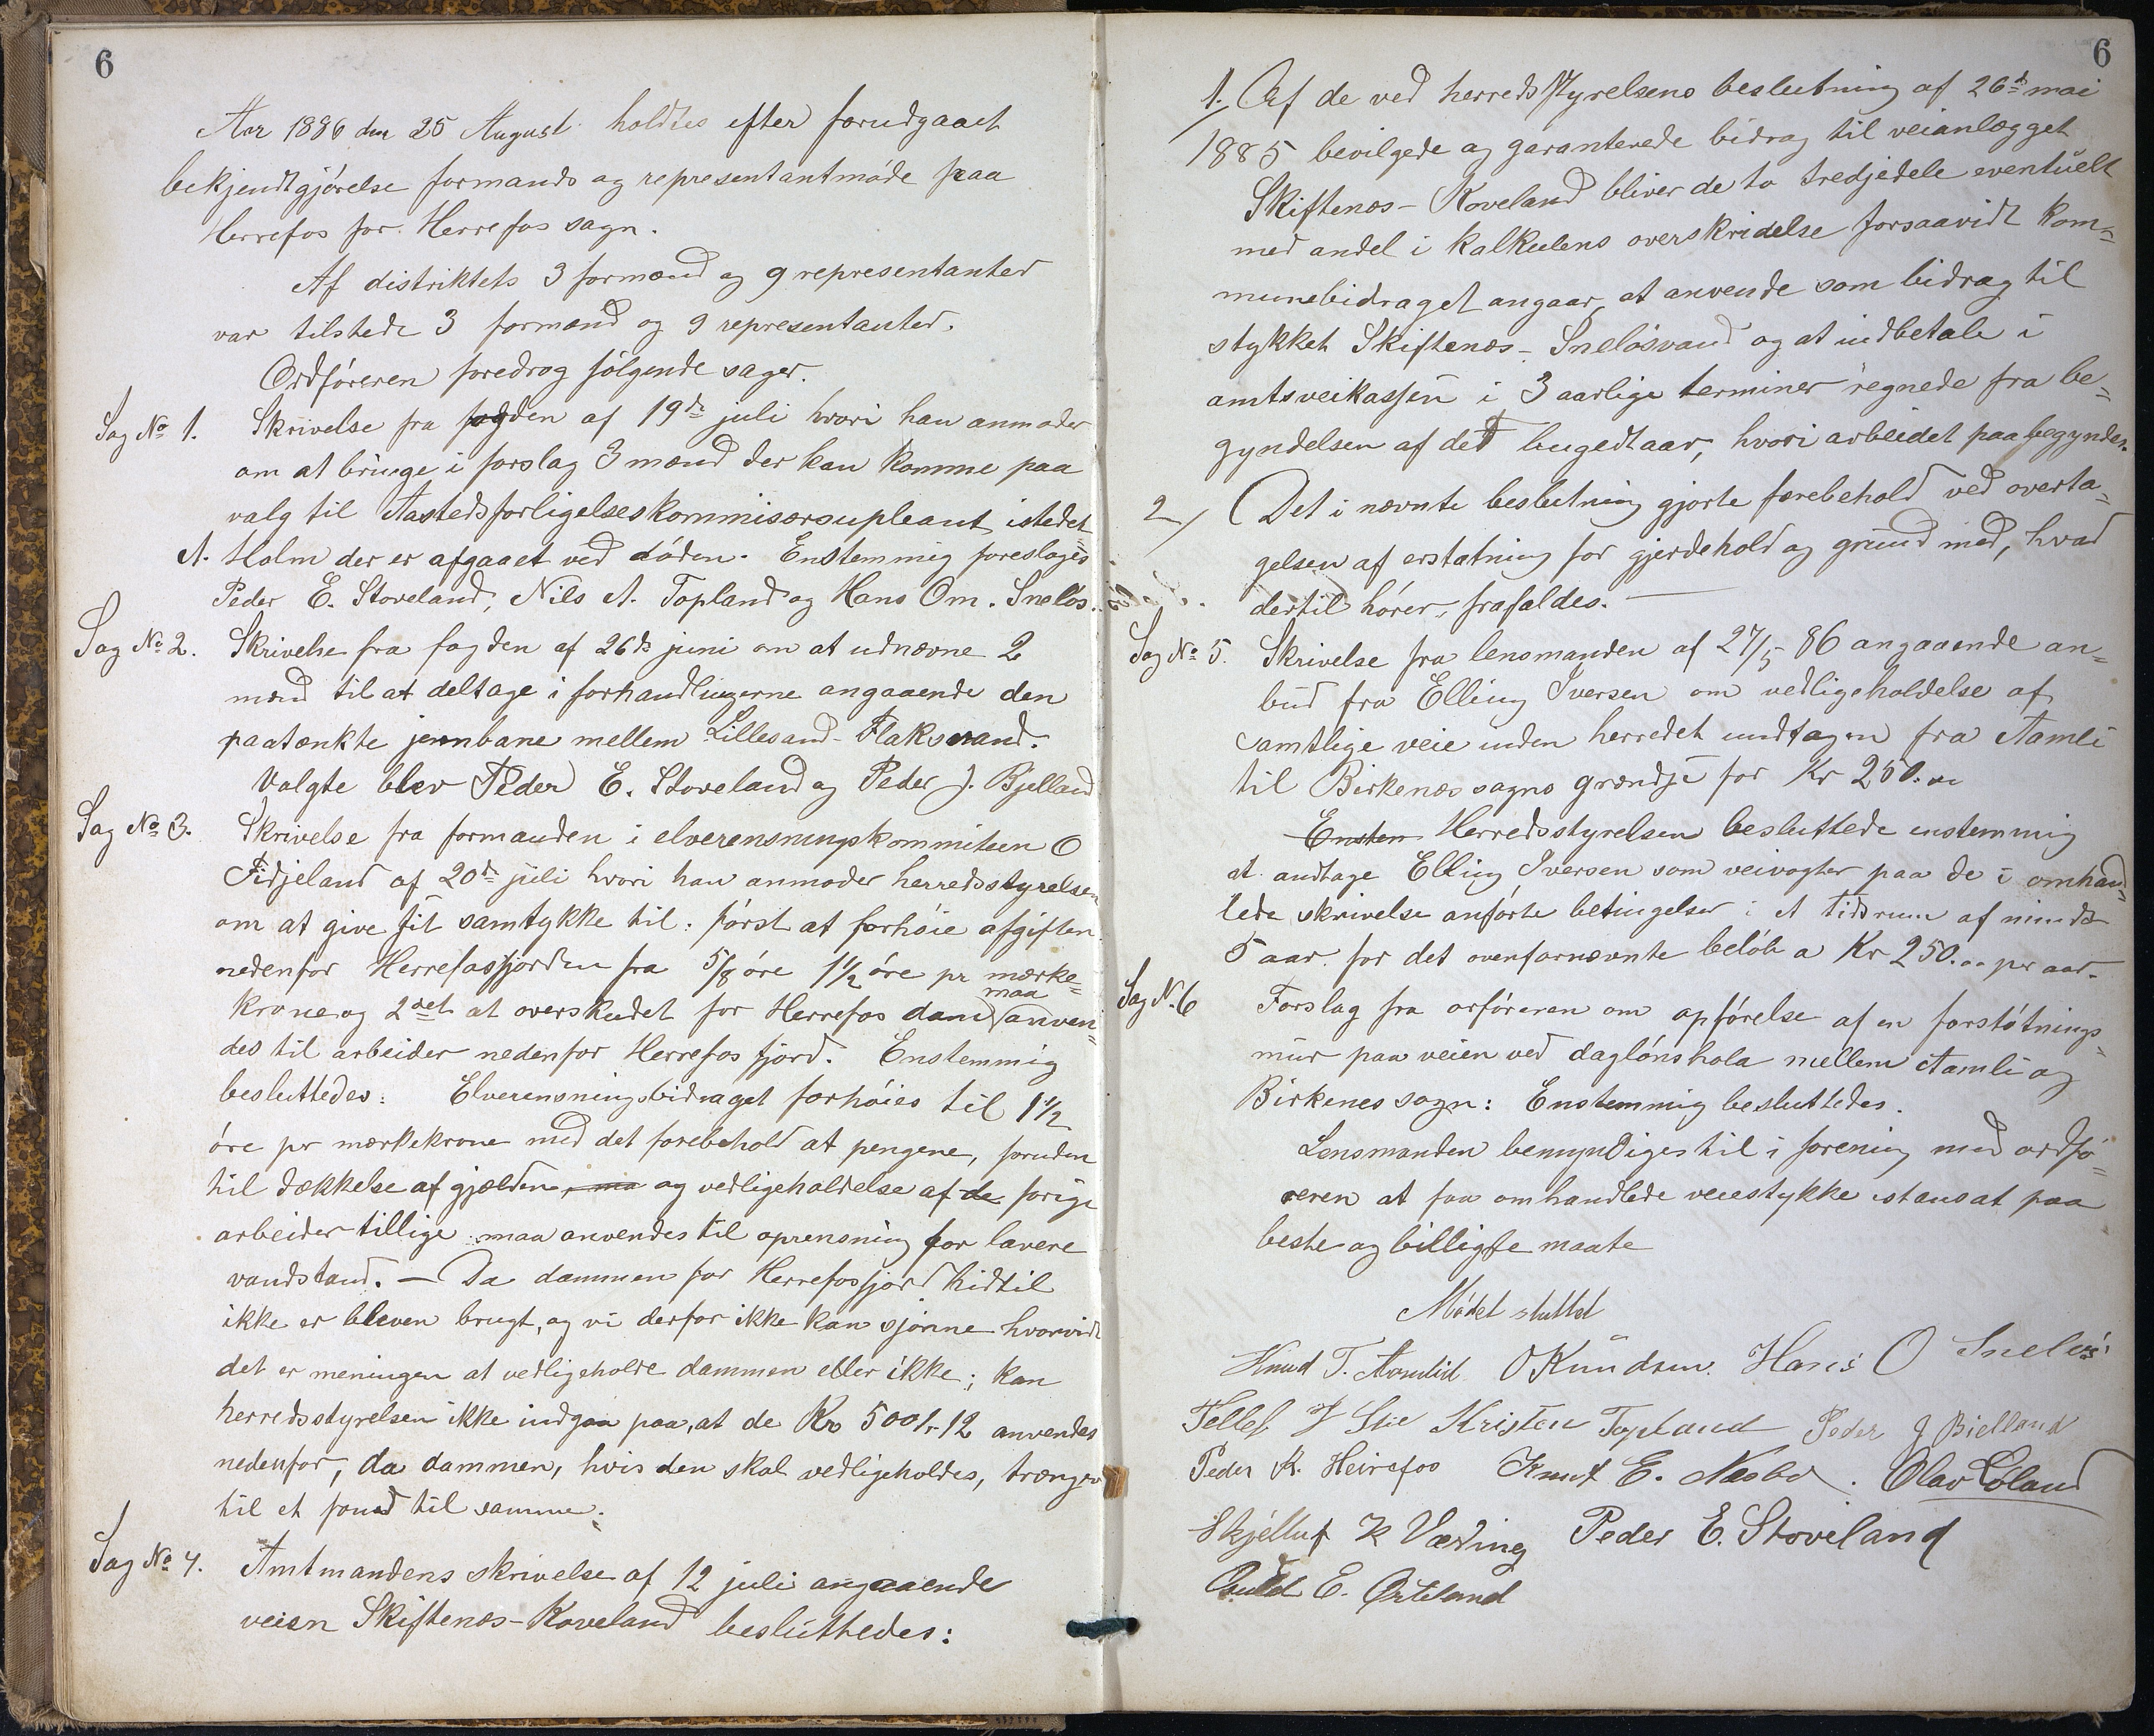 6
Aar 1886 den 25 August holdtes efter forudgaaet
bekjendtgjørelse formands og representantmøde paa
Herrefos for Herrefos sogn.
Af distriktets 3 formænd og 9 representanter
var tilstede 3 formænd og 9 representanter.
Ordføreren foredrog følgende sager.
Sag No 1. Skrivelse fra fogden af 19de juli hvori han anmoder
om at bringe i forslag 3 mænd der kan komme paa
valg til Aastedsforligelseskommisærsupleant istedet
A. Holm der er afgaaet ved døden. Enstemmig foresloges
Peder E. Stoveland, Nils A. Topland og Hans Om. Sneløs.
Sag No 2. Skrivelse fra fogden af 26de juni om at udnævne 2
mænd til at deltage i forhandlingerne angaaende den
paatænkte jernbane mellem Lillesand-Flaksvand.
Valgte blev Peder E. Stoveland og Peder J. Bjelland
Sag No 3. Skrivelse fra formanden i elverensningskommiteen O
Fidjeland af 20de juli hvori han anmoder herredsstyrelsen
om at give sit samtykke til: først at forhøie afgiften
nedenfor Herrefosfjorden fra 5/8 øre 1 1/2 øre pr mærke=
krone og 2det at overskudet for Herrefos dam maa anven=
des til arbeider nedenfor Herrefos fjord. Enstemmig
besluttedes: Elverensningsbidraget forhøies til 1 1/2
øre pr mærkekrone med det forebehold at pengene, foruden
til dækkelse af gjælden, ma og vedligeholdelse af de forige
arbeider tillige maa anvendes til oprensning for lavere
vandstand. — Da dammen for Herrefosfjord hidtil
ikke er bleven brugt, og vi derfor ikke kan sjønne hvorvidt
det er meningen at vedligeholde dammen eller ikke; kan
herredsstyrelsen ikke indgaa paa, at de Kr 5001-12 anvendes
nedenfor, da dammen, hvis den skal vedligeholdes, trænger
til et fond til samme.
Sag No 4. Amtmandens skrivelse af 12 juli angaaende
veien Skiftenæs-Koveland besluttedes:
6
1. Af de ved herredsstyrelsens beslutning af 26de mai
1885 bevilgede og garanterede bidrag til veianlægget
Skiftenæs-Koveland bliver de to tredjedele eventuelt
med andel i kalkulens overskridelse forsaavidt kom=
munebidraget angaar, at anvende som bidrag til
stykket Skiftenæs-Sneløsvand og at indbetale i
amtsveikassen i 3 aarlige terminer regnede fra be=
gyndelsen af det bugedtaar, hvori arbeidet paabegyndes.
2/ Det i nævnte beslutning gjorte forebehold ved overta=
gelsen af erstatning for gjerdehold og grund med, hvad
dertil hører, frafaldes.
Sag No 5. Skrivelse fra lensmanden af 27/5 86 angaaende an=
bud fra Elling Iversen om vedligeholdelse af
samtlige veie inden herredet undtagen fra Aamli
til Birkenæs sogns grændse for Kr 250.
Ensten Herredsstyrelsen besluttede enstemmig
at andtage Elling Iversen som veivogter paa de i omhand=
lede skrivelse anførte betingelser i et tidsrum af minds
5 aar for det ovenfornævnte beløb a Kr 250.00 per aar.
Sag N. 6 Forslag fra orføreren om opførelse af en forstøtnings=
mur paa veien ved dagløns hola mellem Aamli og
Birkenes sogn: Enstemmig besluttedes.
Lensmanden bemyndiges til i forening med ordfø=
reren at faa omhandlede veiestykke istansat paa
beste og billigste maate
Mødet sluttet
Knud T. Aamlid O Knudsen. Hans O Sneløs
Tellef Kristen Topland Peder J Bielland
Peder K. Heirefos Knut E. Næsbø. Olav Loland
Skjelluf K Væding Peder E. Stoveland
E.